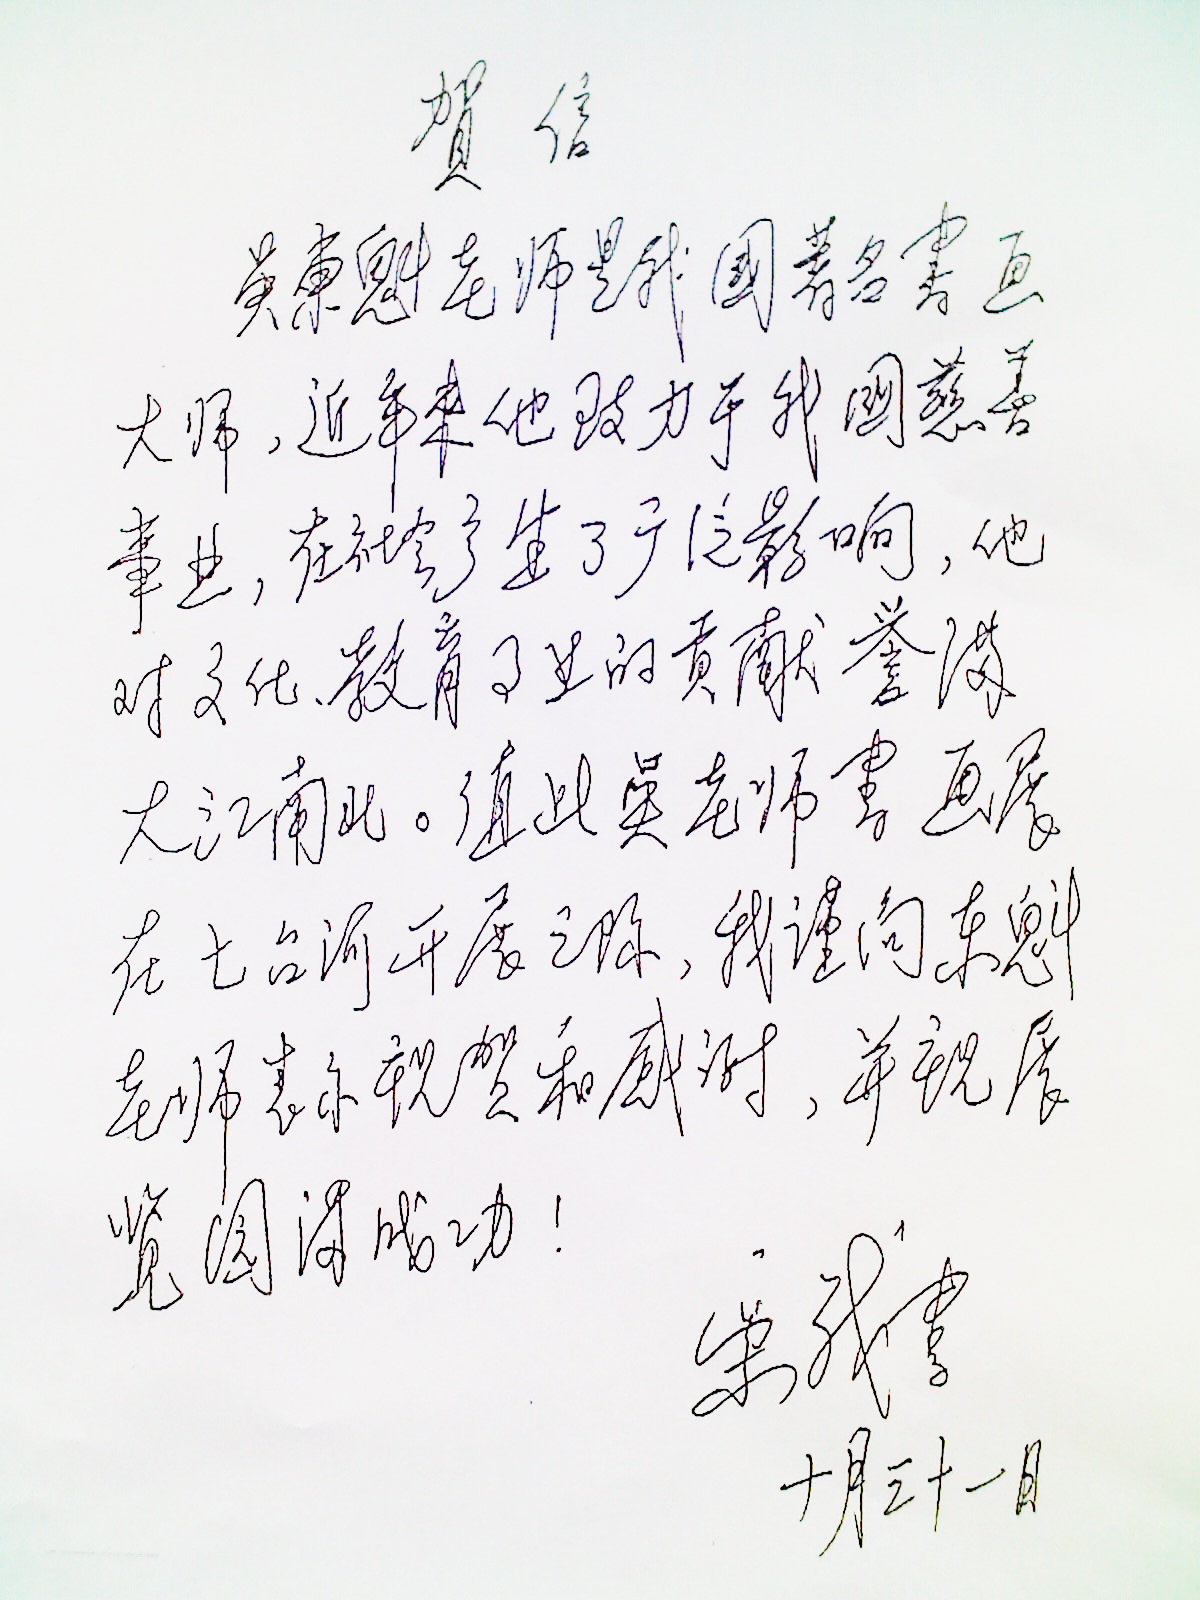 賀信
吴東魁老师是我國著名書画
大师,近年来他致力于我國慈善
事业,在社会产生了广泛影响,他
对文化、教育卫生的贡献誉满
大江南北。值此吴老师書画展
在七台河开展之际,我谨向东魁
老师表示祝贺和感谢,并祝展
览圆满成功!
十月三十一日